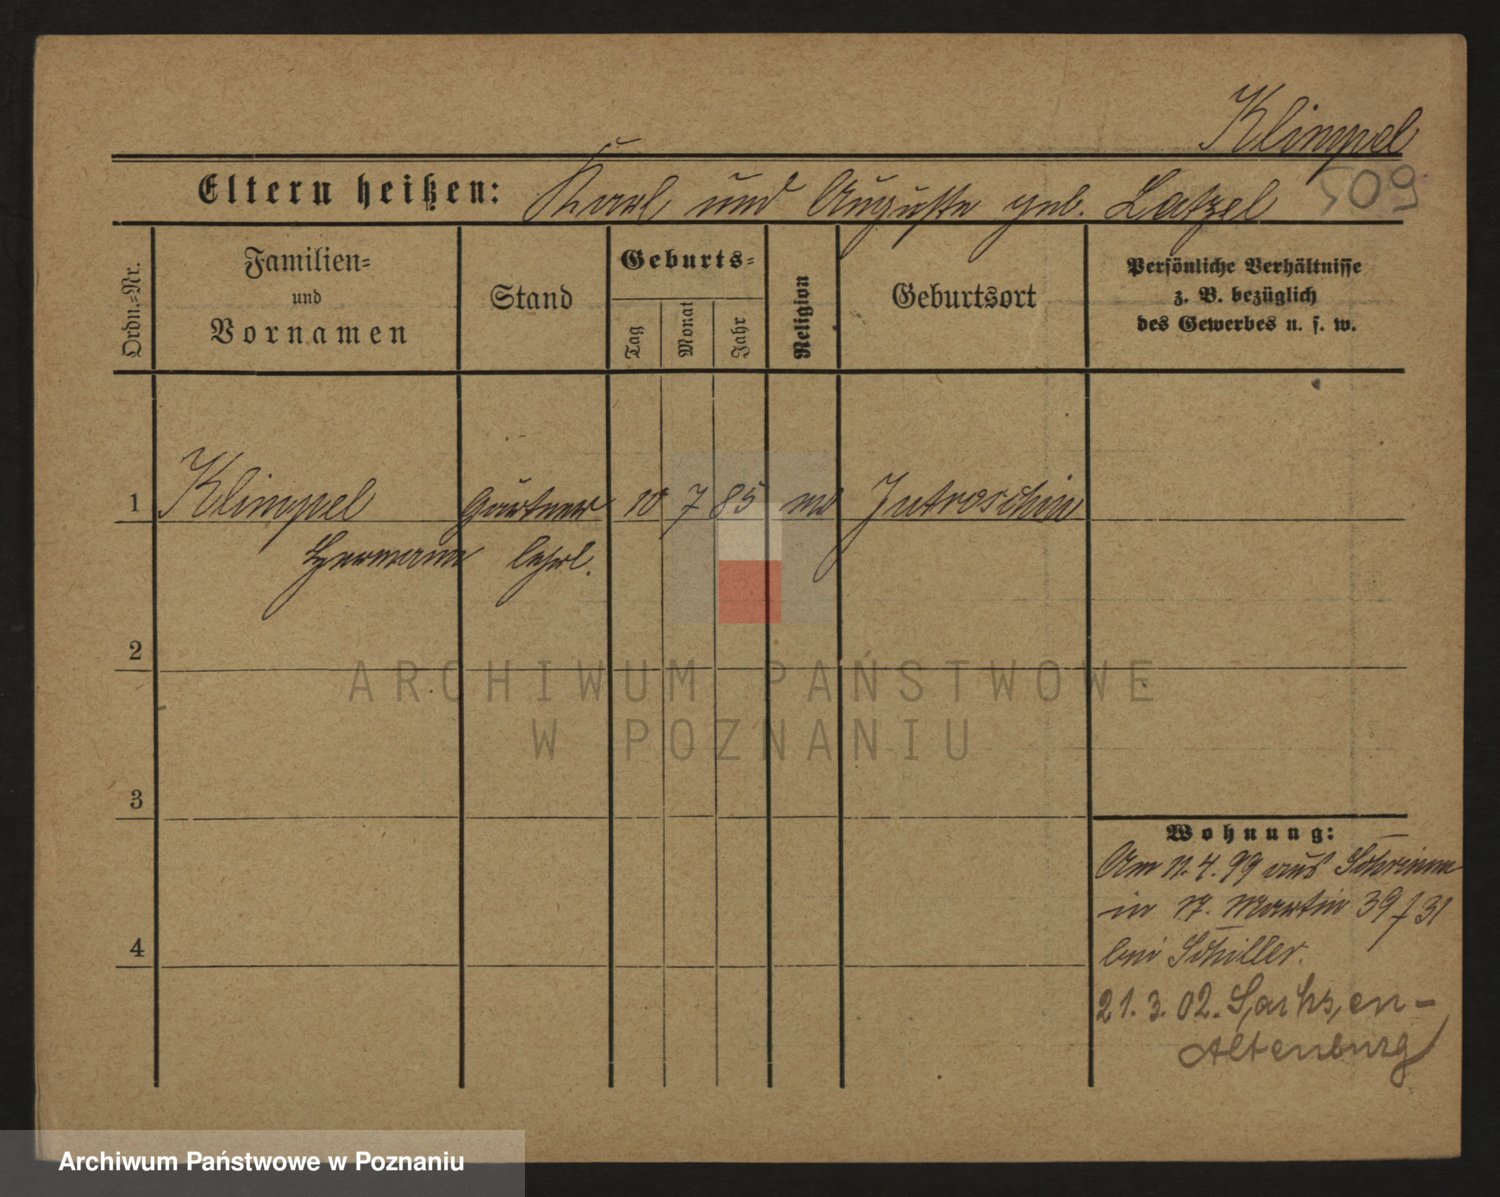 Klimpel
509
Eltern heißen: Karl und Auguste geb. Latzel
Ordn.-Nr.
Familien-
und
Vornamen
Stand
Geburts-
Tag
Monat
Jahr
Religion
Geburtsort
Persönliche Verhältnisse
z. B. bezüglich
des Gewerbes u. s. w.
1 Klimpel Gärtner 10 7 85 Jutroschin
Hermann lehrl.
2
3
4
Wohnung:
Am 11.4.99 aus Schrimm
in St. Martin 39/31
bei Schiller.
21.3.02. Sachsen-
Altenburg
ARCHIWUM PAŃSTWOWE
W POZNANIU
Archiwum Państwowe w Poznaniu